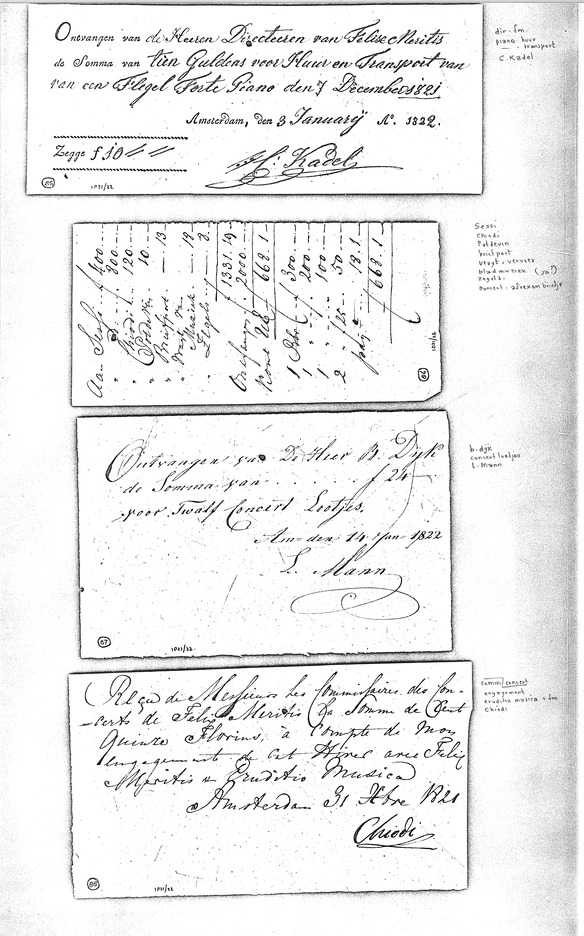 Ontvangen van de Heeren Directeuren van Felix Meritis
de Somma van tien Guldens voor Huur en Transport van
van een Flegel Forte Piano den 7 December 1821
Amsterdam, den 3 Januarij Aº. 1822.
Zegge f 10
H. Kadel
85
1021/22
dir. fm.
piano huur
transport
C. Kadel
Aan Sessi 400
" 800
" Chiodi 120
" 10
" Briefport 13
"
" Muziek 18
" Zegels 8
f 1331.19
2000
668.1
1 300
1 " 200
1 " 100
2 " 25 50
18.1
f 668.1
1021/22
Sessi
Chiodi
Potdevin
briefport
vragt. vervoer
bladmuziek
zegels
concert-afrekenbriefje
Ontvangen van De Heer B. Dijk
de Somma van f 24
voor Twalf Concert Lootjes.
Am den 14 Jan 1822
L. Mann
67
1021/22
b. dijk
concert lootjes
L. Mann
Reçu de Messieurs les Commissaires des Con-
-certs de Felix Meritis la Somme de Cent
Quinze Florins, à Compte de mon
engagement de cet Hiver avec Felix
Meritis & Eruditio Musica
Amsterdam 31 Xbre 1821
Chiodi
1021/22
comm/concert
engagement
eruditio musica + fm
Chiodi